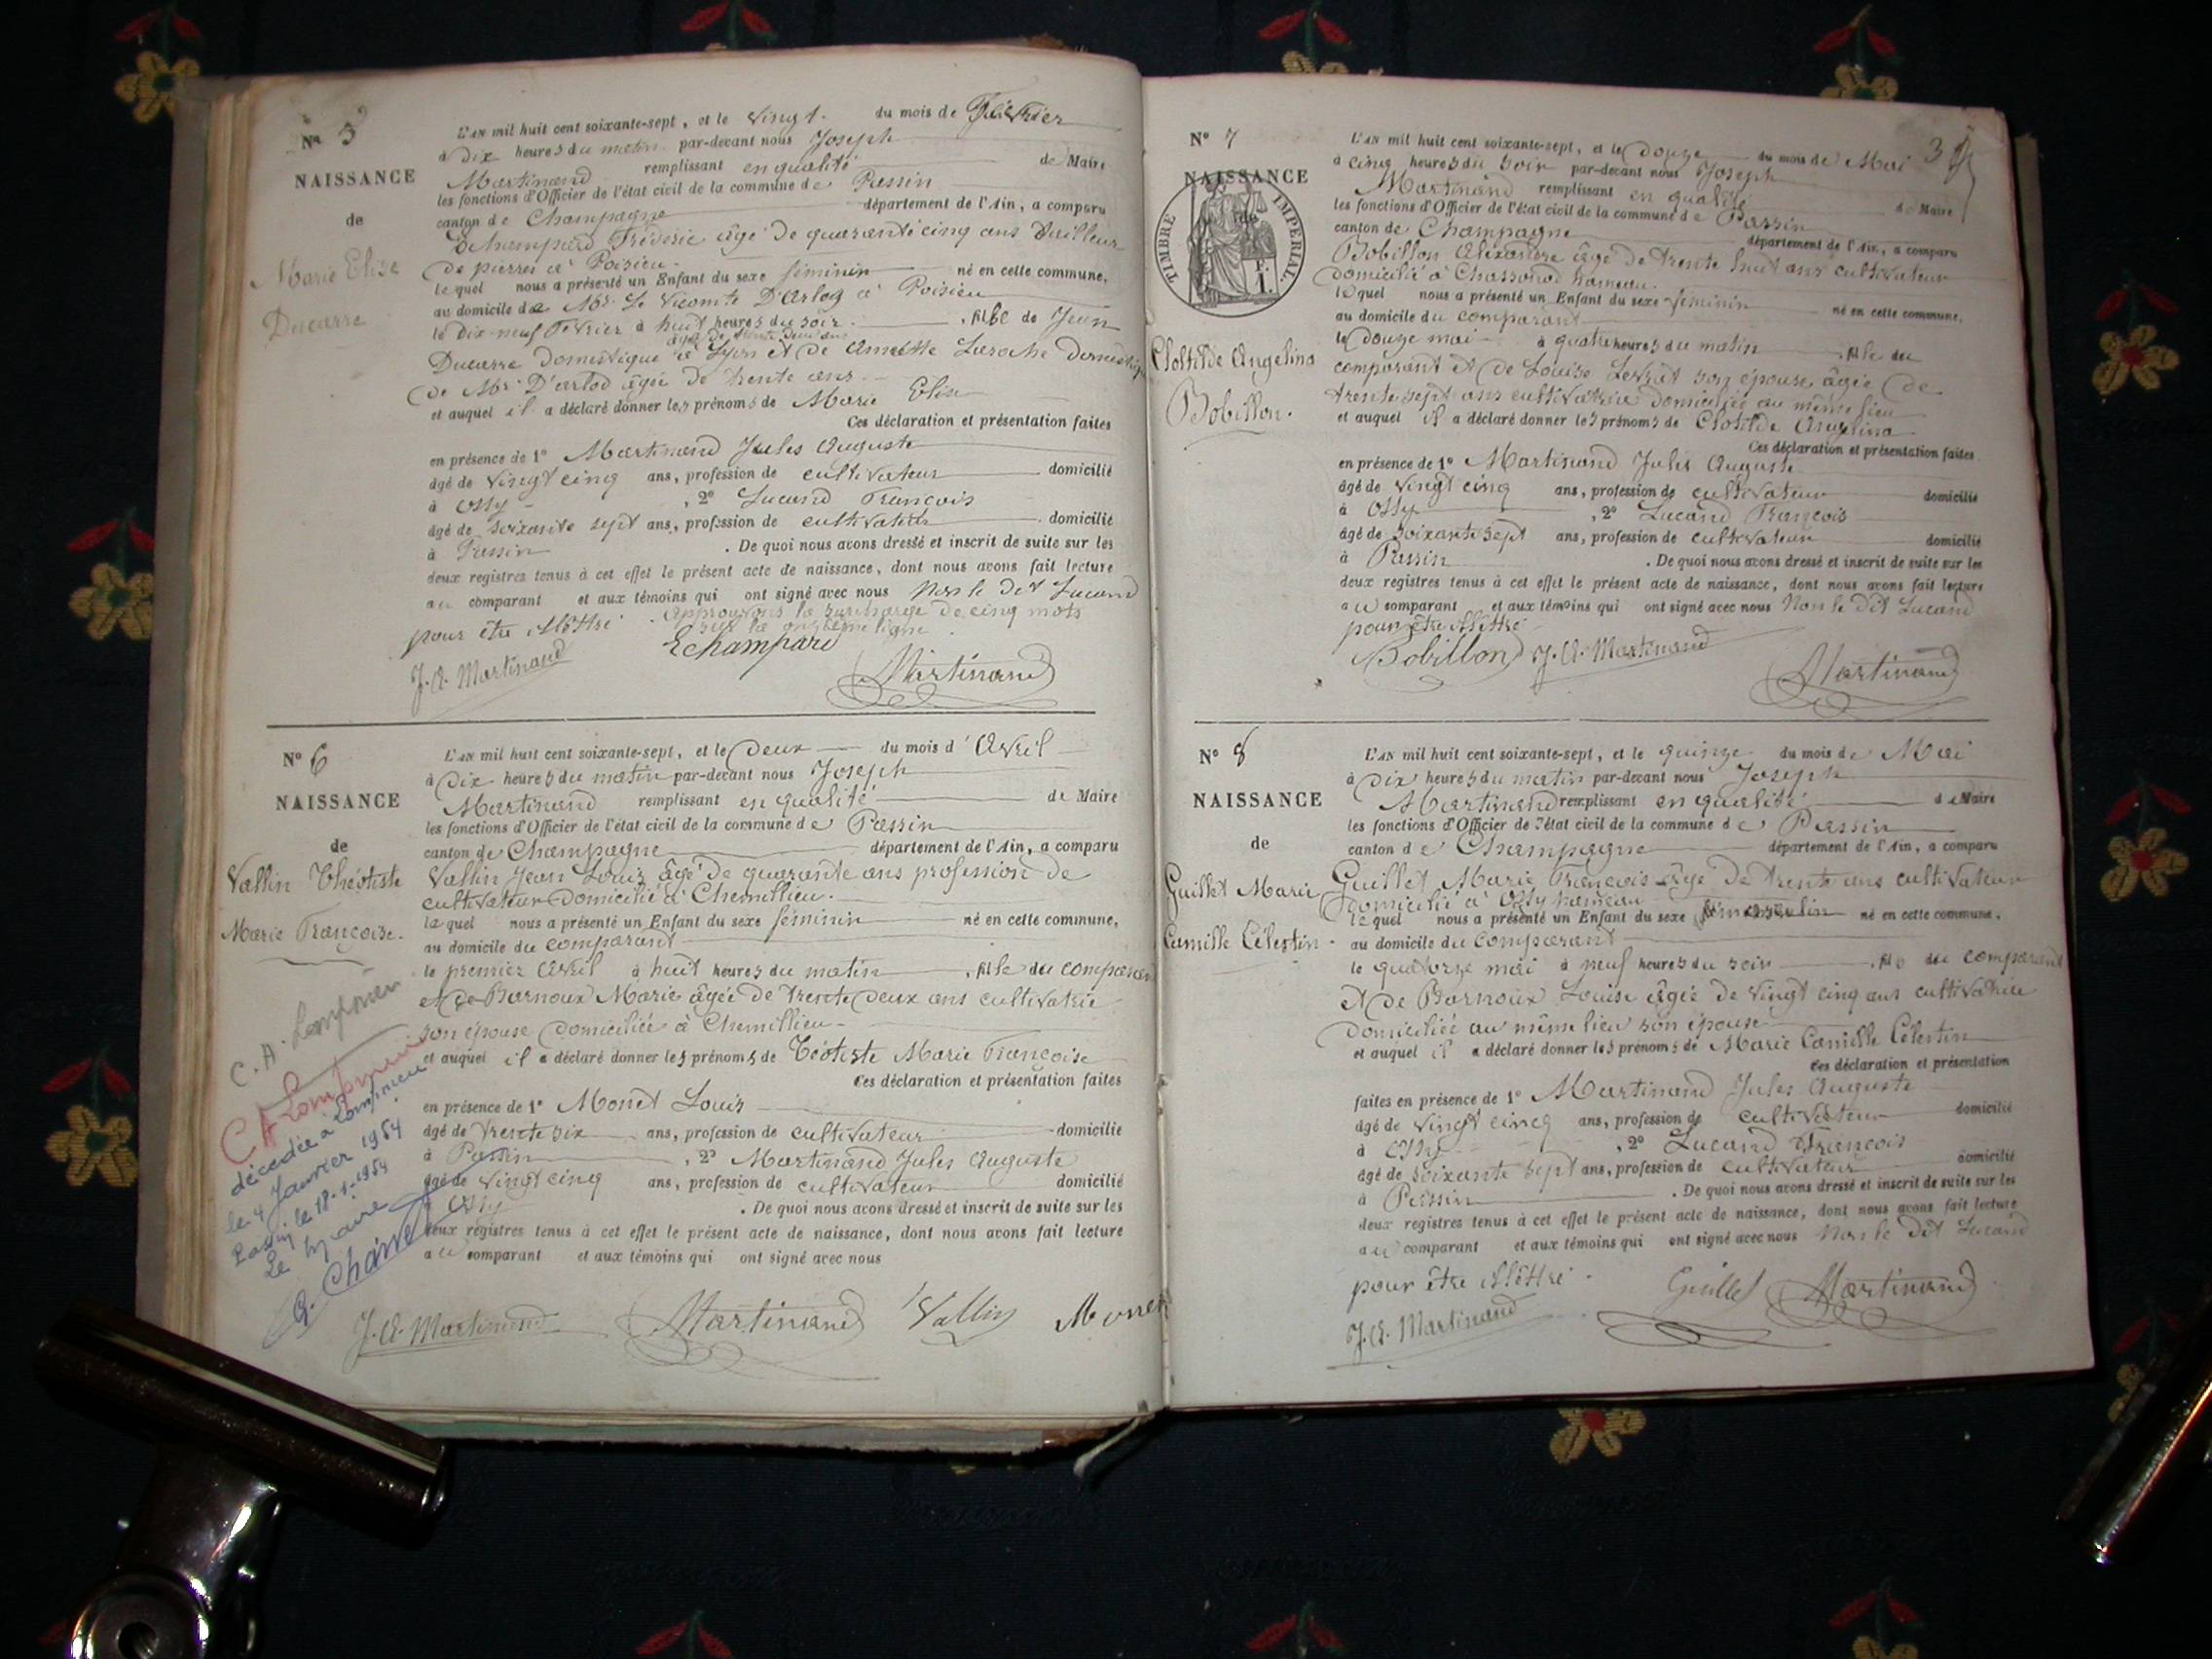 N° 5
NAISSANCE
de
Marie Elise
Ducarre
L'AN mil huit cent soixante-sept, et le vingt du mois de Février
à dix heures du matin par-devant nous Joseph
Martinand remplissant en qualité de Maire
les fonctions d'Officier de l'état civil de la commune de Passin
canton de Champagne département de l'Ain, a comparu
Echampard Fréderic âgé de quarante cinq ans tailleur
de pierres à Poisieu
lequel nous a présenté un Enfant du sexe féminin né en cette commune,
au domicile de Mr. Le Vicomte D'arlod à Poisieu
le dix-neuf Février à huit heures du soir, fille de Jean
âgé de trente deux ans
Ducarre domestique à Lyon et de Laroche domestique
de Mr. D'arlod âgée de trente ans
et auquel il a déclaré donner les prénoms de Marie Elise
Ces déclaration et présentation faites
en présence de 1° Martinand Jules Auguste
âgé de vingt cinq ans, profession de cultivateur domicilié
à Ossy, 2° Lucand François
âgé de soixante sept ans, profession de cultivateur domicilié
à Passin. De quoi nous avons dressé et inscrit de suite sur les
deux registres tenus à cet effet le présent acte de naissance, dont nous avons fait lecture
au comparant et aux témoins qui ont signé avec nous Non le dit Lucand
pour être illettré. Approuvons la surcharge de cinq mots
sur la onzième ligne.
J. A. Martinand Echampard Martinand
N° 6
NAISSANCE
de
Vallin Théotiste
Marie Françoise.
L'AN mil huit cent soixante-sept, et le deux du mois d'Avril
à dix heures du matin par-devant nous Joseph
Martinand remplissant en qualité de Maire
les fonctions d'Officier de l'état civil de la commune de Passin
canton de Champagne département de l'Ain, a comparu
Vallin Jean Louis âgé de quarante ans profession de
cultivateur domicilié à Chemillieu.
lequel nous a présenté un Enfant du sexe féminin né en cette commune,
au domicile du comparant
le premier Avril à huit heures du matin, fille du comparant
et de Bornoux Marie âgée de trente deux ans cultivatrice
son épouse domiciliée à Chemillieu
et auquel il a déclaré donner les prénoms de Téotiste Marie Françoise
Ces déclaration et présentation faites
en présence de 1° Monet Louis
âgé de trente six ans, profession de cultivateur domicilié
à Passin, 2° Martinand Jules Auguste
âgé de vingt cinq ans, profession de cultivateur domicilié
à Ossy. De quoi nous avons dressé et inscrit de suite sur les
deux registres tenus à cet effet le présent acte de naissance, dont nous avons fait lecture
au comparant et aux témoins qui ont signé avec nous
C. A. Lompnieu
C A Lompnieu
décédée à Lompnieu
le 4 Janvier 1954
Passin le 18-1-1954
Le Maire
J. A. Martinand Martinand Vallin Monet
3
N° 7
NAISSANCE
de
TIMBRE IMPERIAL.
F.
1.
Clotilde Angelina
Bobillon.
L'AN mil huit cent soixante-sept, et le douze du mois de Mai
à cinq heures du soir par-devant nous Joseph
Martinand remplissant en qualité de Maire
les fonctions d'Officier de l'état civil de la commune de Passin
canton de Champagne département de l'Ain, a comparu
Bobillon Alexandre âgé de trente huit ans cultivateur
domicilié à hameau.
lequel nous a présenté un Enfant du sexe féminin né en cette commune,
au domicile du comparant
le douze mai à quatre heures du matin, fille du
comparant et de Louise son épouse âgée de
trente sept ans cultivatrice domiciliée au même lieu
et auquel il a déclaré donner les prénoms de Clotilde Angelina
Ces déclaration et présentation faites
en présence de 1° Martinand Jules Auguste
âgé de vingt cinq ans, profession de cultivateur domicilié
à Ossy, 2° Lucand François
âgé de soixante sept ans, profession de cultivateur domicilié
à Passin. De quoi nous avons dressé et inscrit de suite sur les
deux registres tenus à cet effet le présent acte de naissance, dont nous avons fait lecture
au comparant et aux témoins qui ont signé avec nous Non le dit Lucand
pour être illettré
Bobillon J. A. Martinand Martinand
N° 8
NAISSANCE
de
Guillet Marie
Camille Célestin
L'AN mil huit cent soixante-sept, et le quinze du mois de Mai
à dix heures du matin par-devant nous Joseph
Martinand remplissant en qualité de Maire
les fonctions d'Officier de l'état civil de la commune de Passin
canton de Champagne département de l'Ain, a comparu
Guillet Marie François âgé de trente ans cultivateur
domicilié à Ossy hameau
lequel nous a présenté un Enfant du sexe masculin né en cette commune,
au domicile du comparant
le quatorze mai à neuf heures du soir, fils du comparant
et de Bornoux Louise âgée de vingt cinq ans cultivatrice
domiciliée au même lieu son épouse
et auquel il a déclaré donner les prénoms de Marie Camille Célestin
Ces déclaration et présentation
faites en présence de 1° Martinand Jules Auguste
âgé de vingt cinq ans, profession de cultivateur domicilié
à Ossy, 2° Lucand François
âgé de soixante sept ans, profession de cultivateur domicilié
à Passin. De quoi nous avons dressé et inscrit de suite sur les
deux registres tenus à cet effet le présent acte de naissance, dont nous avons fait lecture
au comparant et aux témoins qui ont signé avec nous Non le dit Lucand
pour être illettré. Guillet Martinand
J. A. Martinand